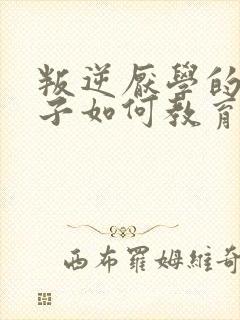 叛逆厭學的
子如何教育
西布羅姆維奇